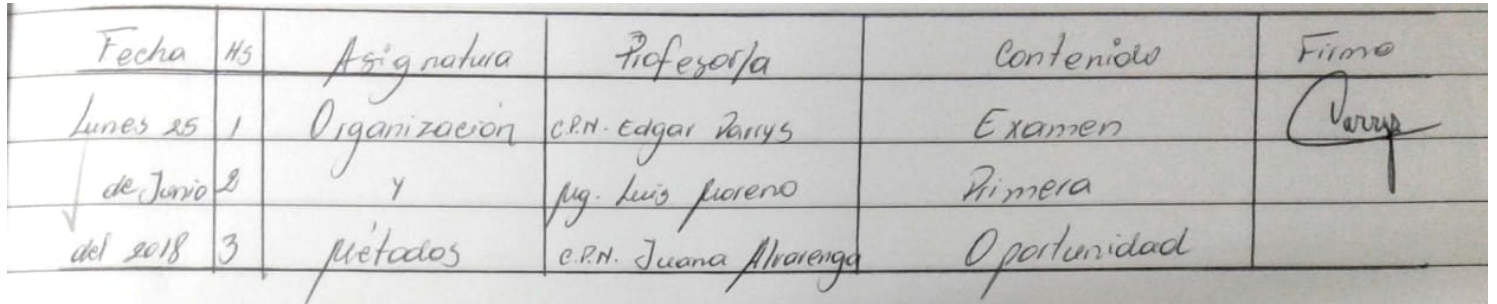 Fecha Hs Asignatura Profesor/a Contenido Firma
Lunes 25 1 Organización C.P.N. Edgar Parrys Examen Parrys
de Junio 2 y Mg. Luis Moreno Primera
del 2018 3 Métodos C.P.N. Juana Alvarenga Oportunidad